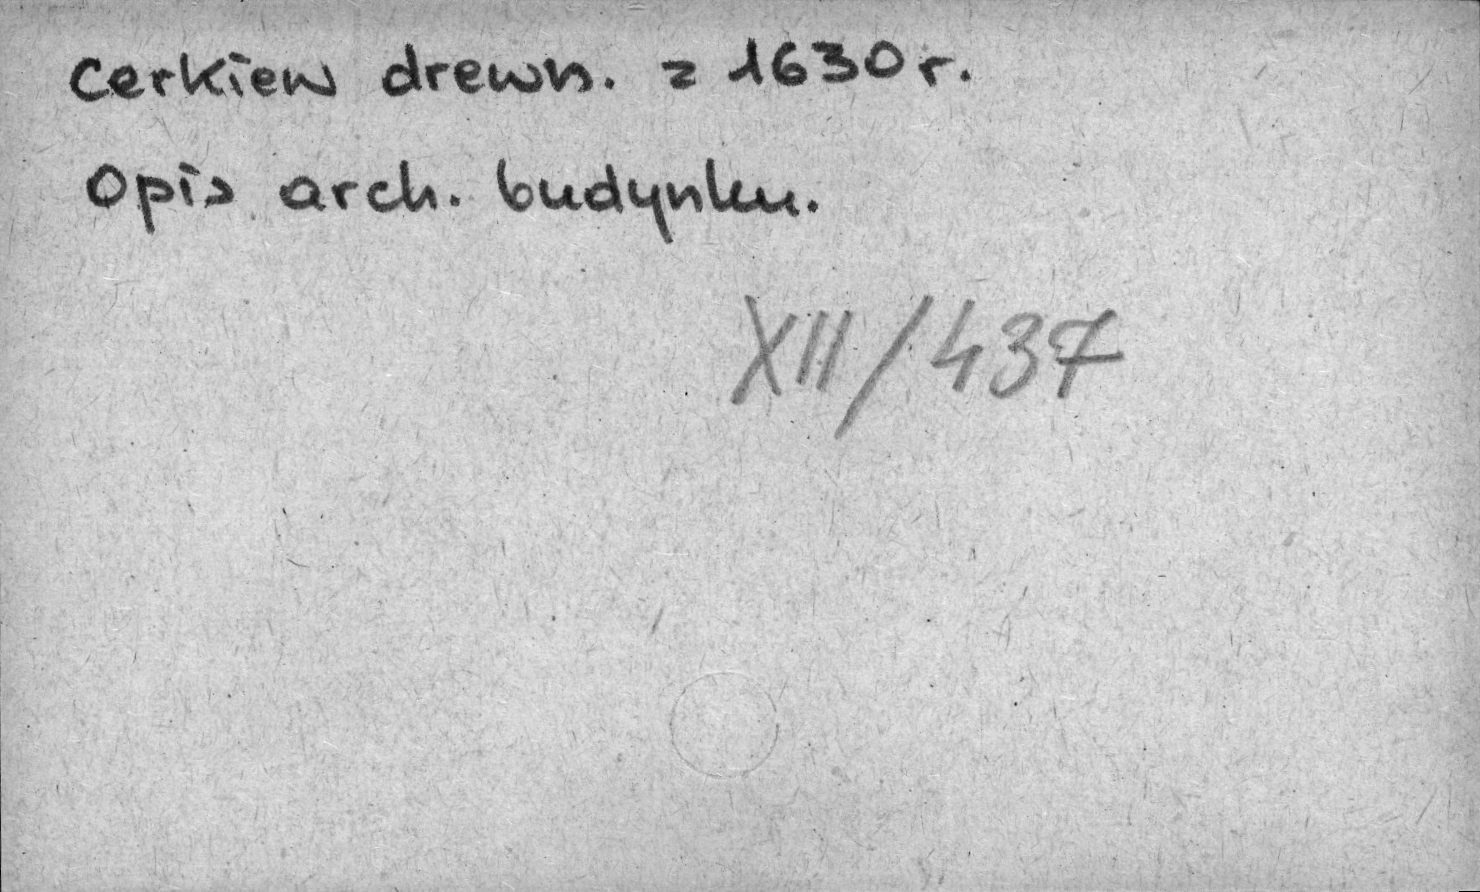 Cerkiew drewn. z 1630 r.
Opis arch. budynku.
XII/437